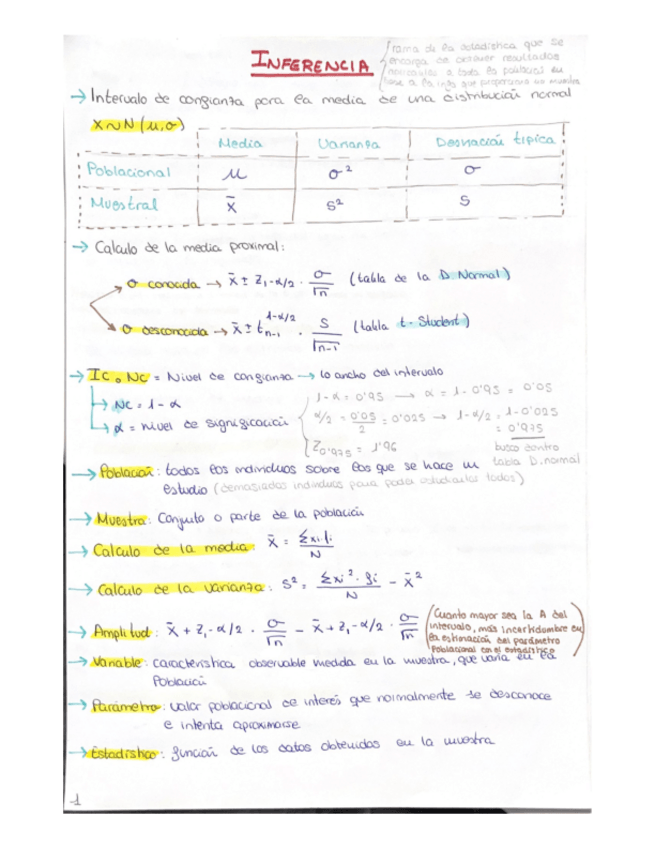 INFERENCIA
rama de la estadística que se
encarga de obtener resultados
necesarios a toda la población en
base a la info que proporciona las muestras
→ Intervalo de confianza para la media de una distribución normal
X∼N(μ,σ)
Media Varianza Desviación típica
Poblacional μ σ² σ
Muestral x̄ S² S
→ Calculo de la media proximal:
σ conocida → x̄ ± z₁-α/2 · σ/√n (tabla de la D. Normal)
σ desconocida → x̄ ± t 1-α/2 n-1 · S/√n-1 (tabla t-Student)
→ Ic o Nc = Nivel de confianza → lo ancho del intervalo
→ Nc = 1 - α
→ α = nivel de significación
1-α = 0'95 → α = 1 - 0'95 = 0'05
α/2 = 0'05/2 = 0'025 → 1-α/2 = 1-0'025
= 0'975
Z0'975 = 1'96
busco dentro
tabla D.normal
→ Población: todos los individuos sobre los que se hace un
estudio (demasiados individuos para poder estudiarlos todos)
→ Muestra: Conjunto o parte de la población
→ Calculo de la media: x̄ = Σxi.fi/N
→ Calculo de la varianza: S² = Σxi²·fi/N - x̄²
→ Amplitud: x̄ + z₁-α/2 · σ/√n - x̄ + z₁-α/2 · σ/√n
(Cuanto mayor sea la A del
intervalo, más incertidumbre en
la estimación del parámetro
Poblacional con el estadístico)
→ Variable: característica observable medida en la muestra, que varia en la
Población
→ Parámetro: valor poblacional de interés que normalmente se desconoce
e intenta aproximarse
→ Estadístico: función de los datos obtenidos en la muestra
1